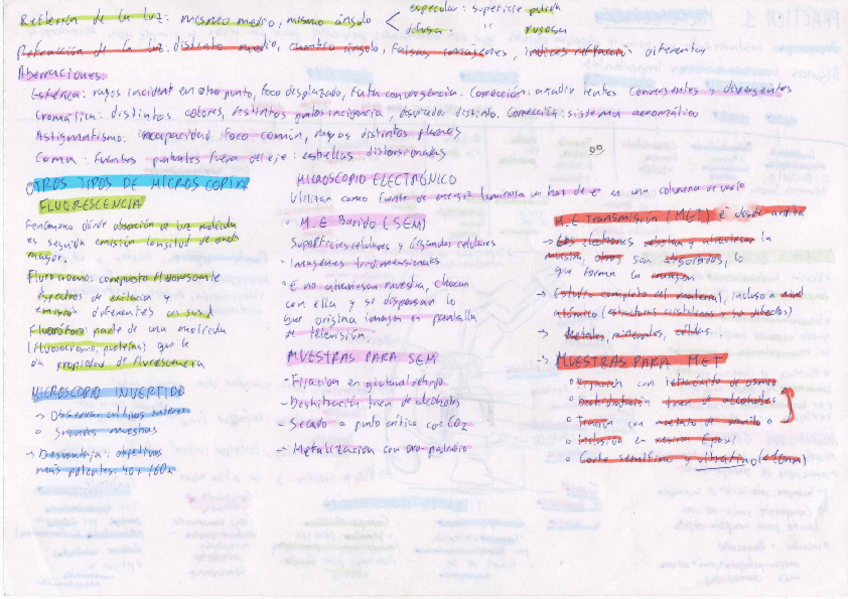 Reflexión de la luz: mismo medio, mismo ángulo
especular: superficie pulida
difusa " rugosa
Refracción de la luz: distinto medio, cambia ángulo, falsas imágenes, índices refracción diferentes
Aberraciones:
Esférica: rayos incident en otro punto, foco desplazado, falta convergencia. Corrección: añadir lentes convergentes y divergentes
Cromática: distintos colores, distintos puntos incidencia, distinto. Corrección: sistema acromático
Astigmatismo: incapacidad foco común, rayos distintos planos
Coma: fuentes puntuales fuera del eje: estrellas distorsionadas
OTROS TIPOS DE MICROSCOPIA
FLUORESCENCIA
Fenómeno dónde absorción de luz molécula
es seguida emisión longitud de onda
mayor.
Fluorocromo: compuesto fluorescente
espectros de excitación y
emisión diferentes
Fluoróforo: parte de una molécula
(fluorocromo, proteína) que le
da propiedad de fluorescencia
MICROSCOPIO INVERTIDO
→ Observar cultivos
grandes muestras
→ Desventaja: objetivos
más potentes: 40x 160x
MICROSCOPIO ELECTRÓNICO
Utilizan como fuente de energía luminosa un haz de e⁻ en una columna de vacío
• M.E Barrido (SEM)
Superficies celulares y orgánulos celulares
• Imágenes tridimensionales
• E no atraviesan muestra, chocan
con ella y se dispersan lo
que origina imagen en pantalla
de televisión.
MUESTRAS PARA SEM
- Fijación en glutaraldehído
- Deshidratación tren de alcoholes
- Secado a punto crítico con CO2
- Metalización con oro-paladio
M.E Transmisión (MET) e⁻ desde arriba
→ Los electrones atravesar la
muestra, otros son absorbidos, lo
que forma la imagen
→ Estudio completo del material, incluso a nivel
atómico (estructuras cristalinas y sus defectos)
→ Metales, minerales, células.
→ MUESTRAS PARA MET
• con tetraóxido de osmio
• Deshidratación tren de alcoholes
• Tinción con acetato de uranilo
• Inclusión en resina Epoxi
• Corte semifino y ultrafino